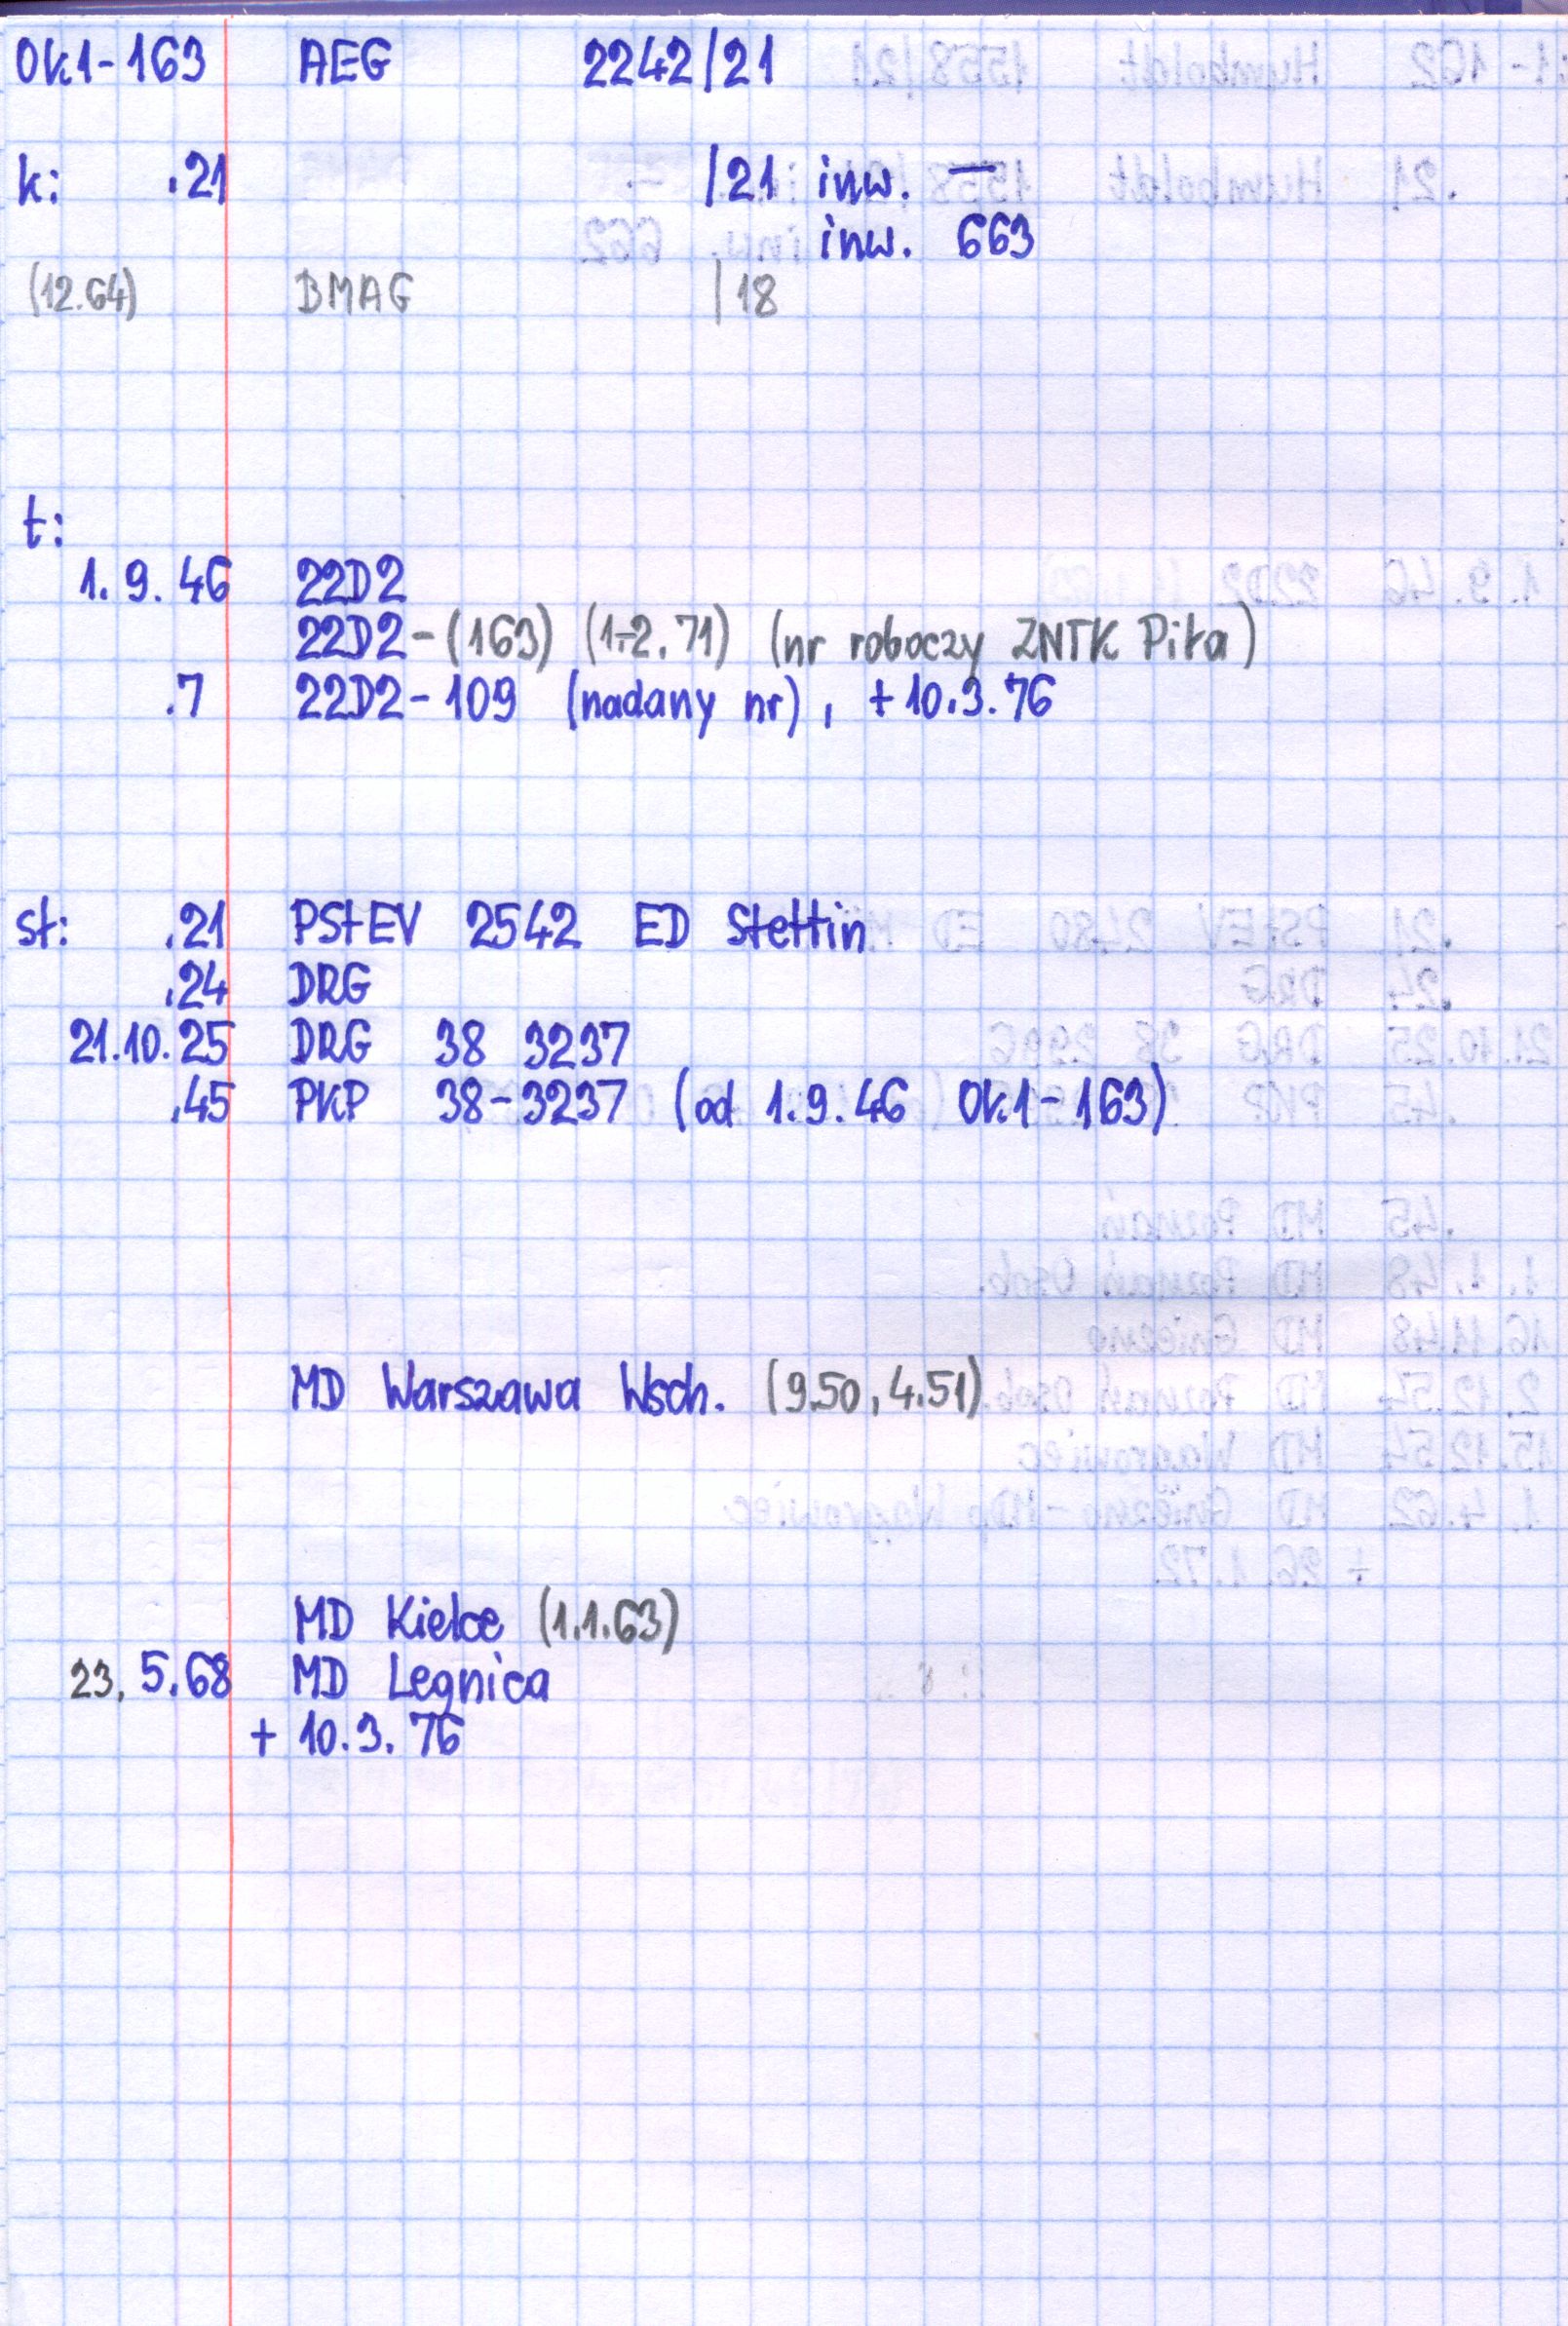 Ok1-163 AEG 2242/21
k: .21 /21 inw. —
inw. 663
(12.64) BMAG /18
t:
1.9.46 22D2
22D2-(163) (1-2.71) (nr roboczy ZNTK Piła)
.7 22D2-109 (nadany nr), +10.3.76
st: .21 PStEV 2542 ED Stettin
.24 DRG
21.10.25 DRG 38 3237
.45 PKP 38-3237 (od 1.9.46 Ok1-163)
MD Warszawa Wsch. (9.50, 4.51)
MD Kielce (1.1.63)
23.5.68 MD Legnica
+ 10.3.76